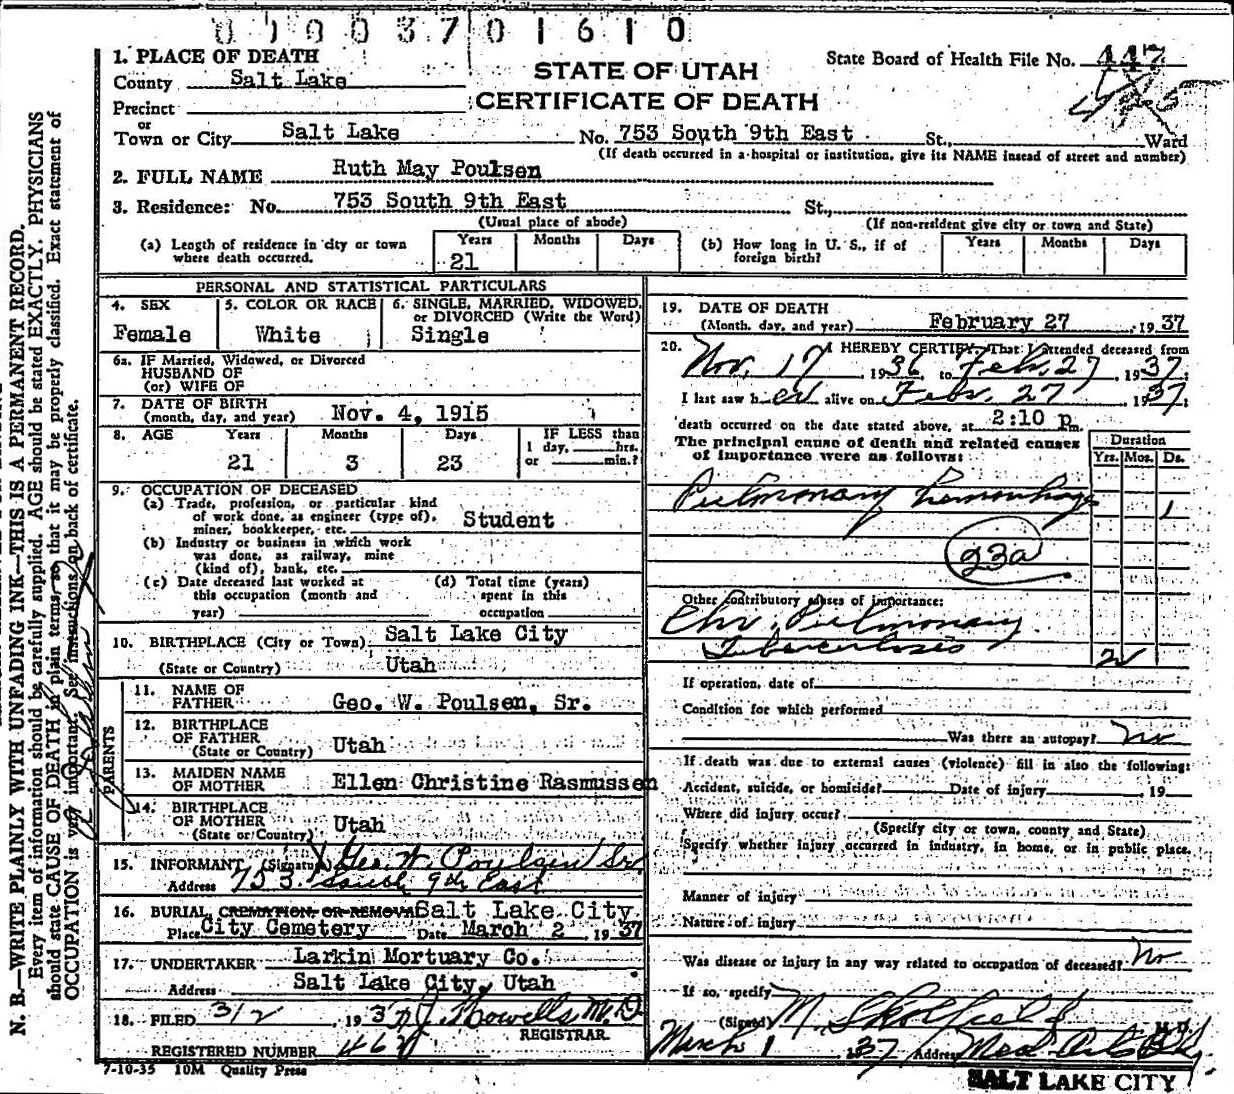 0100370 1610
1. PLACE OF DEATH
County Salt Lake
STATE OF UTAH
State Board of Health File No. 447
Precinct
CERTIFICATE OF DEATH
or
Town or City Salt Lake No. 753 South 9th East St., Ward
(If death occurred in a hospital or institution, give its NAME instead of street and number)
2. FULL NAME Ruth May Poulsen
3. Residence: No. 753 South 9th East St.,
(Usual place of abode) (If non-resident give city or town and State)
(a) Length of residence in city or town where death occurred. Years 21 Months Days
(b) How long in U. S., if of foreign birth? Years Months Days
PERSONAL AND STATISTICAL PARTICULARS
4. SEX Female
5. COLOR OR RACE White
6. SINGLE, MARRIED, WIDOWED, or DIVORCED (Write the Word) Single
6a. IF Married, Widowed, or Divorced
HUSBAND OF
(or) WIFE OF
7. DATE OF BIRTH
(month, day, and year) Nov. 4, 1915
8. AGE Years 21 Months 3 Days 23 IF LESS than 1 day, hrs. or min.?
9. OCCUPATION OF DECEASED
(a) Trade, profession, or particular kind
of work done, as engineer (type of),
miner, bookkeeper, etc. Student
(b) Industry or business in which work
was done, as railway, mine
(kind of), bank, etc.
(c) Date deceased last worked at
this occupation (month and
year)
(d) Total time (years)
spent in this
occupation
10. BIRTHPLACE (City or Town) Salt Lake City
(State or Country) Utah
PARENTS
11. NAME OF FATHER Geo. W. Poulsen, Sr.
12. BIRTHPLACE OF FATHER
(State or Country) Utah
13. MAIDEN NAME OF MOTHER Ellen Christine Rasmussen
14. BIRTHPLACE OF MOTHER
(State or Country) Utah
15. INFORMANT (Signature) Geo. W. Poulsen Sr
Address 753 South 9th East
16. BURIAL CREMATION OR REMOVAL Salt Lake City
Place City Cemetery Date March 2 1937
17. UNDERTAKER Larkin Mortuary Co.
Address Salt Lake City, Utah
18. FILED 3/2, 1937 Howells M.D.
REGISTRAR
REGISTERED NUMBER
7-10-35 10M Quality Press
19. DATE OF DEATH
(Month, day, and year) February 27, 1937
20. I HEREBY CERTIFY, That I attended deceased from
Nov. 17, 1936, to Feb. 27, 1937;
I last saw her alive on Feb. 27 1937;
death occurred on the date stated above, at 2:10 P m.
The principal cause of death and related causes
of importance were as follows:
Duration
Yrs. Mos. Ds.
Pulmonary hemorrhage 1
23a
Other contributory causes of importance:
Chr. Pulmonary
Tuberculosis 2
If operation, date of
Condition for which performed
Was there an autopsy? No
If death was due to external causes (violence) fill in also the following:
Accident, suicide, or homicide? Date of injury 19
Where did injury occur?
(Specify city or town, county and State)
Specify whether injury occurred in industry, in home, or in public place.
Manner of injury
Nature of injury
Was disease or injury in any way related to occupation of deceased? No
If so, specify
(Signed) M. Skolfield M.D.
March 1 1937 Address Med Arts Bldg
SALT LAKE CITY
N. B.—WRITE PLAINLY WITH UNFADING INK—THIS IS A PERMANENT RECORD.
Every item of information should be carefully supplied. AGE should be stated EXACTLY. PHYSICIANS
should state CAUSE OF DEATH in plain terms, so that it may be properly classified. Exact statement of
OCCUPATION is very important. See instructions on back of certificate.